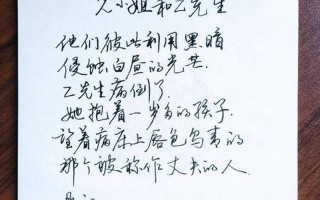 小姐和乙先生
他们彼此利用黑暗
侵蚀白昼的光芒.
乙先生病倒了.
她抱着一岁多的孩子
望着病床上唇色乌青的
那个被称作丈夫的人.